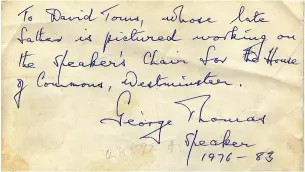 To David Touns, whose late
father is pictured working on
the speaker's Chair for the House
of Commons, Westminster.
George Thomas
Speaker
1976-83